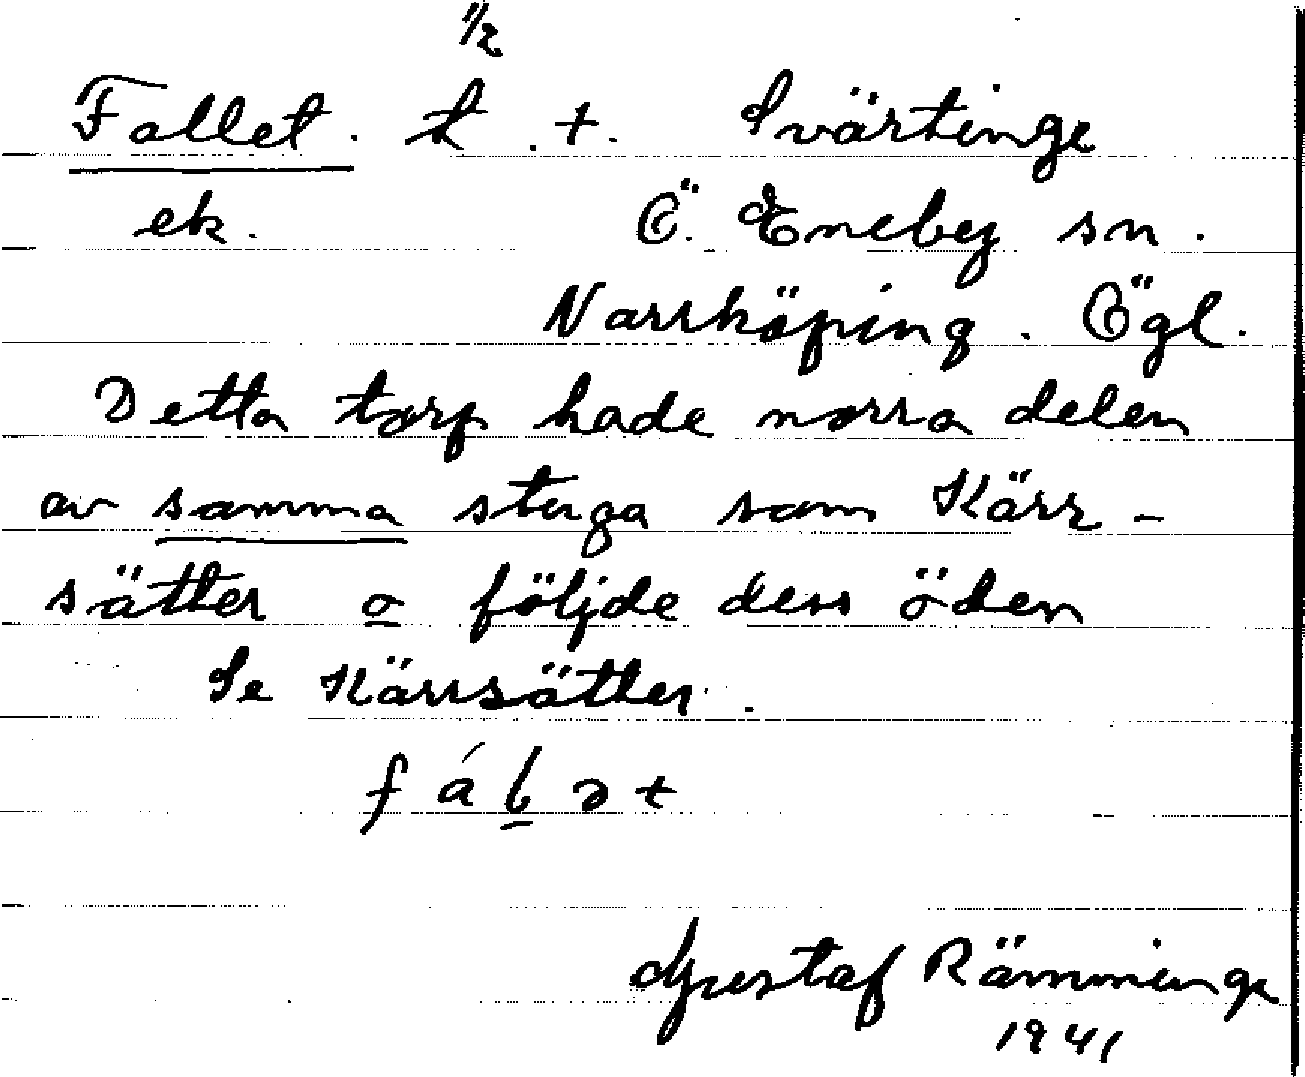 1/2
Fallet. t. +. Svärtinge
ek. Ö. Eneby sn.
Norrköping. Ögl.
Detta torp hade norra delen
av samma stuga som Kärr-
sätter o följde dess öden
Se Kärrsätter.
f á l ə t
Gustaf Rämminge
1941